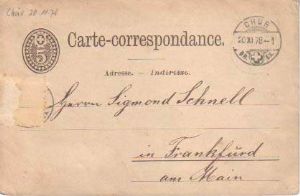 Chur 20.11.78
5
Carte-correspondance.
CHUR
20 XI 78 - 1
Adresse. - Indirizzo.
Herrn Sigmond Schnell
in Frankfurd
am Main